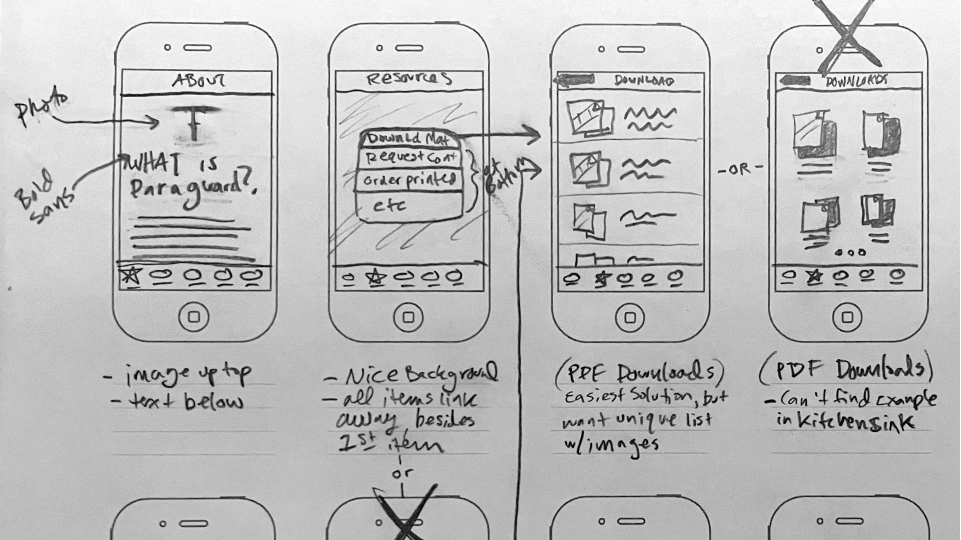 ABOUT
Photo
Bold
sans
WHAT is
Paraguard?
- image up top
- text below
Resources
Downld Mat
Request Cont
order printed
etc
at
Bottom
- Nice Background
- all items link
away besides
1st item
or
DOWNLOAD
(PDF Downloads)
Easiest Solution, but
want unique list
w/images
-OR-
DOWNLOADS
(PDF Downloads)
- Can't find Example
in Kitchensink